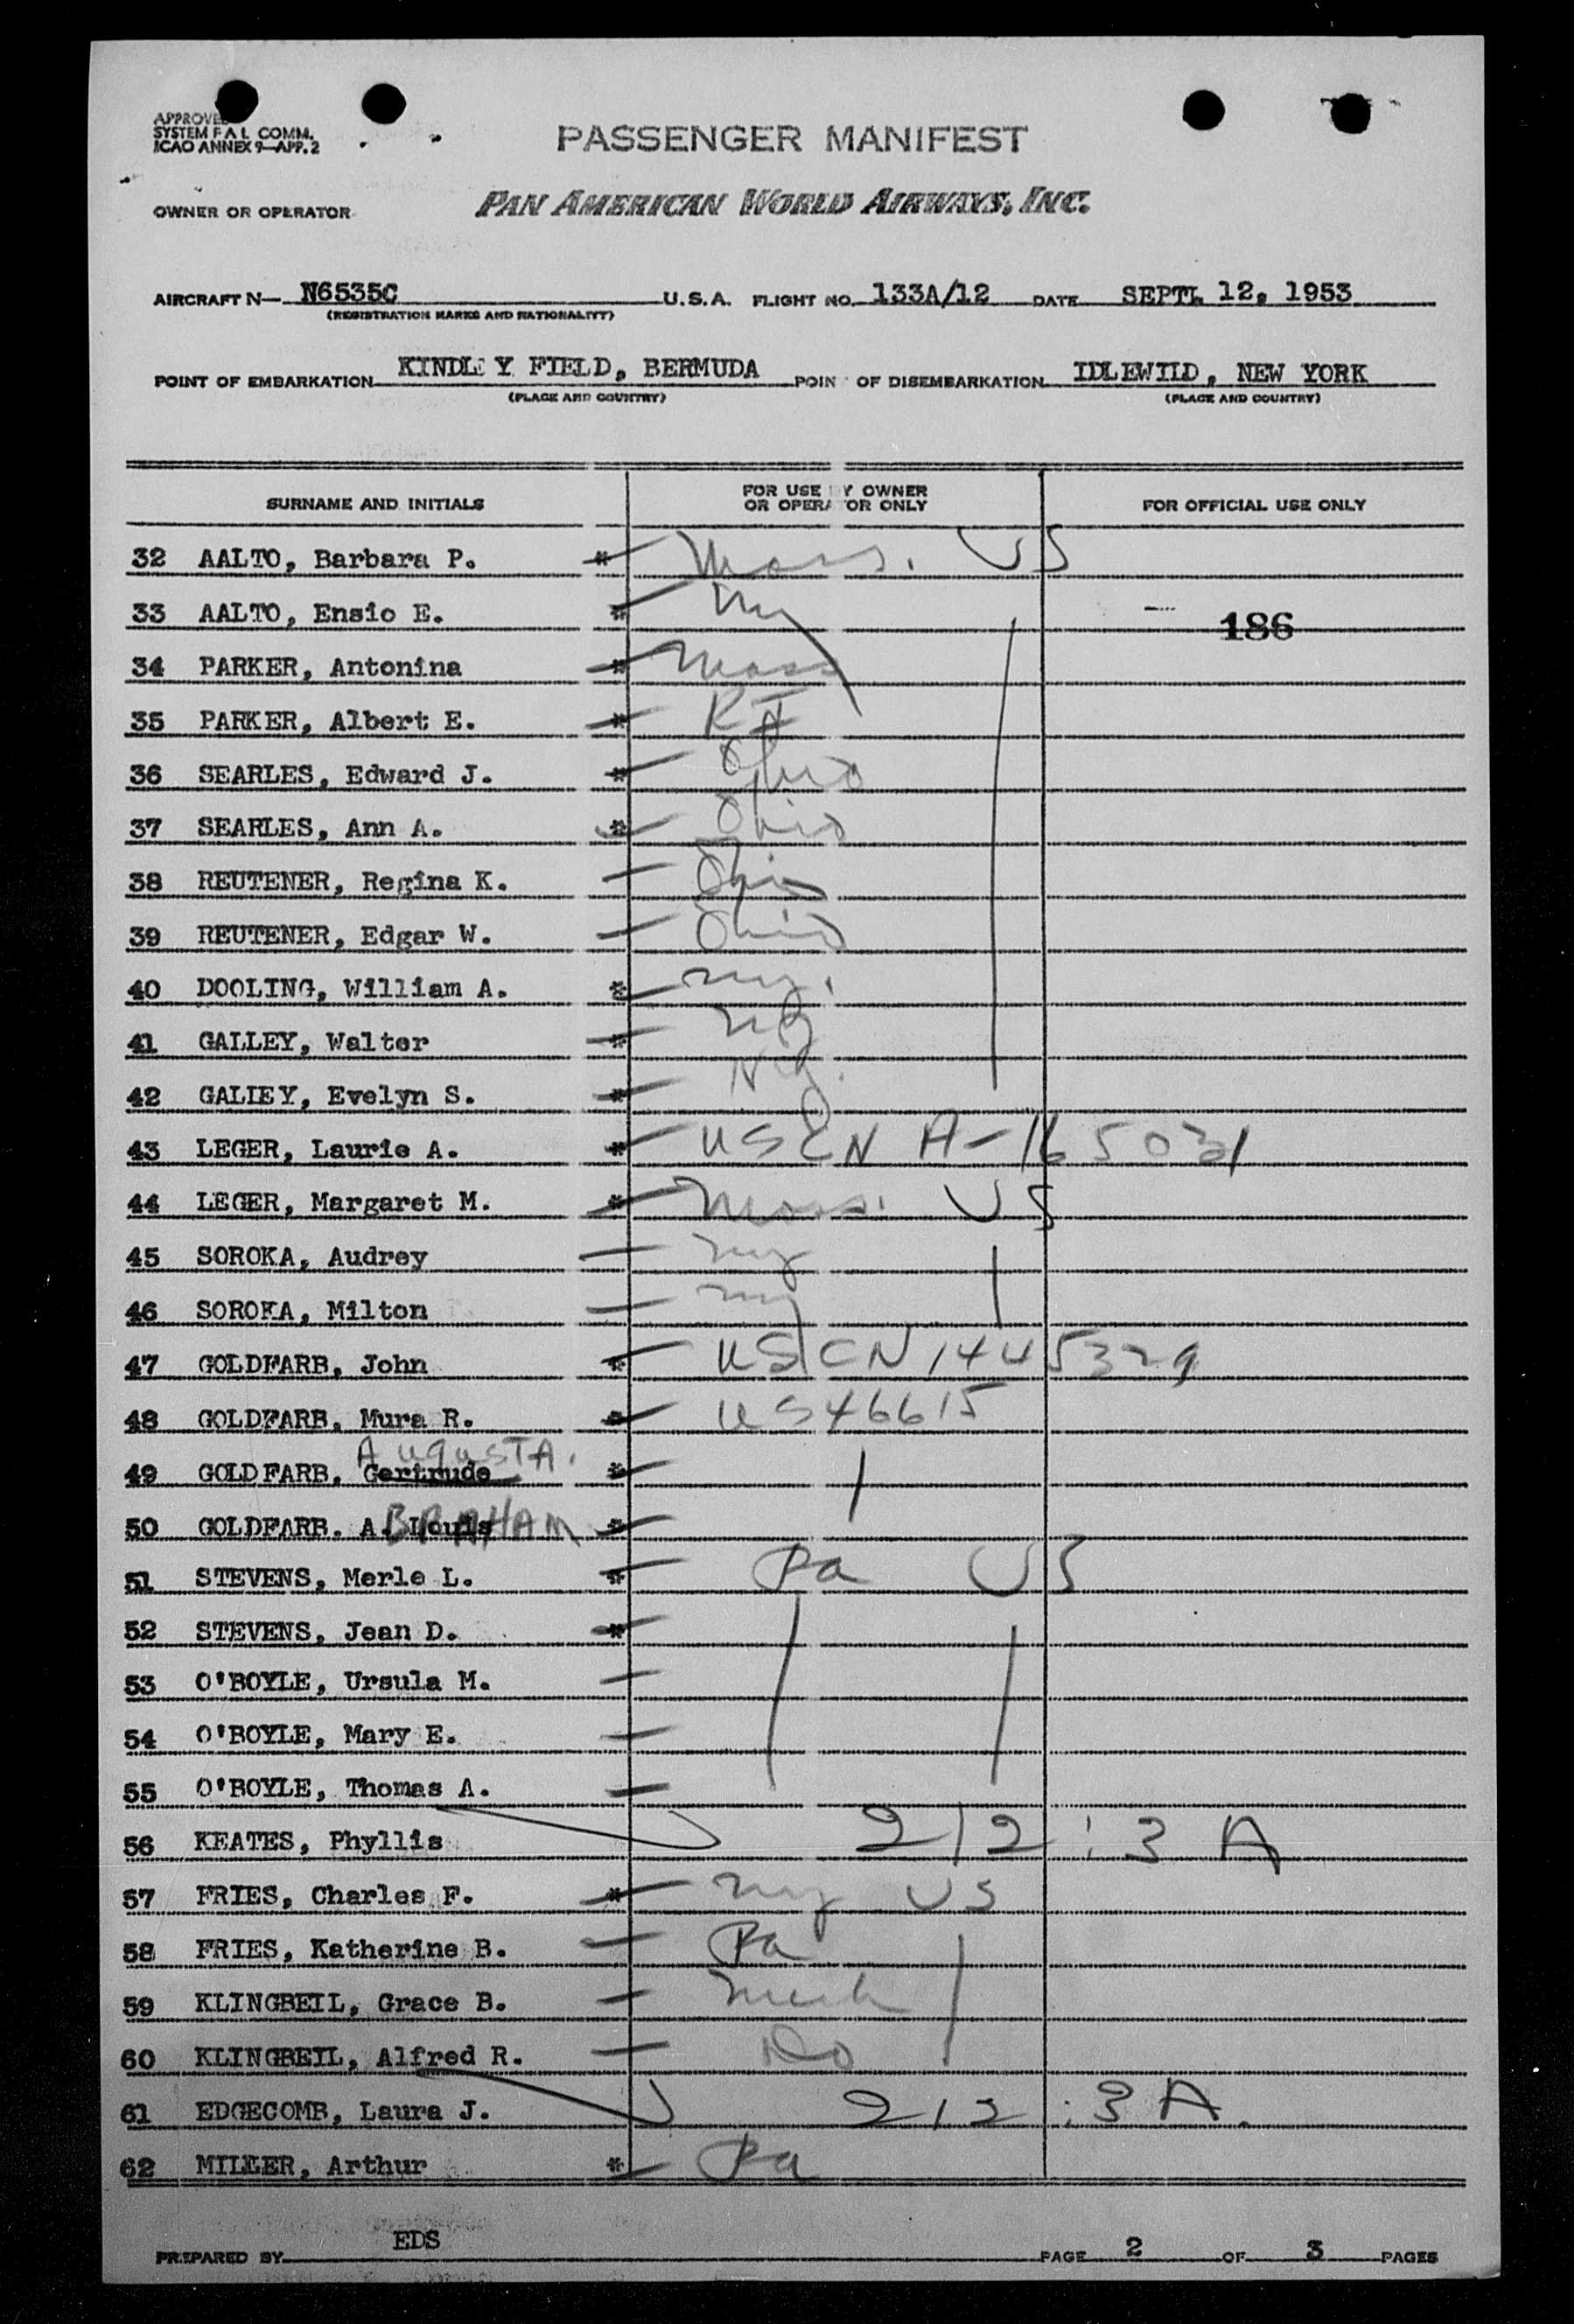 APPROVED
SYSTEM F A L COMM.
ICAO ANNEX 9-APP. 2
PASSENGER MANIFEST
OWNER OR OPERATOR PAN AMERICAN WORLD AIRWAYS, INC.
AIRCRAFT N— N6535C U.S.A. FLIGHT NO. 133A/12 DATE SEPT. 12, 1953
(REGISTRATION MARKS AND NATIONALITY)
POINT OF EMBARKATION KINDLEY FIELD, BERMUDA POINT OF DISEMBARKATION IDLEWILD, NEW YORK
(PLACE AND COUNTRY) (PLACE AND COUNTRY)
SURNAME AND INITIALS FOR USE BY OWNER OR OPERATOR ONLY FOR OFFICIAL USE ONLY
32 AALTO, Barbara P. * Mass. US
33 AALTO, Ensio E. * Ny
186
34 PARKER, Antonina * Mass
35 PARKER, Albert E. * RI
36 SEARLES, Edward J. * Ohio
37 SEARLES, Ann A. * Ohio
38 REUTENER, Regina K. Ohio
39 REUTENER, Edgar W. Ohio
40 DOOLING, William A. * Ny.
41 GALLEY, Walter * NJ
42 GALLEY, Evelyn S. * NJ.
43 LEGER, Laurie A. * USCN A-165031
44 LEGER, Margaret M. * Mass. US
45 SOROKA, Audrey Ny
46 SOROKA, Milton Ny
47 GOLDFARB, John * USCN 1445329
48 GOLDFARB, Mura R. * US46615
AugusTA.
49 GOLDFARB, Gertrude *
50 GOLDFARB. A. Louis BRAHAM *
51 STEVENS, Merle L. * Pa US
52 STEVENS, Jean D. *
53 O'BOYLE, Ursula M.
54 O'BOYLE, Mary E.
55 O'BOYLE, Thomas A.
56 KEATES, Phyllis 212:3 A
57 FRIES, Charles F. * Ny US
58 FRIES, Katherine B. Pa
59 KLINGBEIL, Grace B. Mich
60 KLINGBEIL, Alfred R. Do
61 EDGECOMB, Laura J. 212:3 A.
62 MILLER, Arthur * Pa
PREPARED BY EDS PAGE 2 OF 3 PAGES